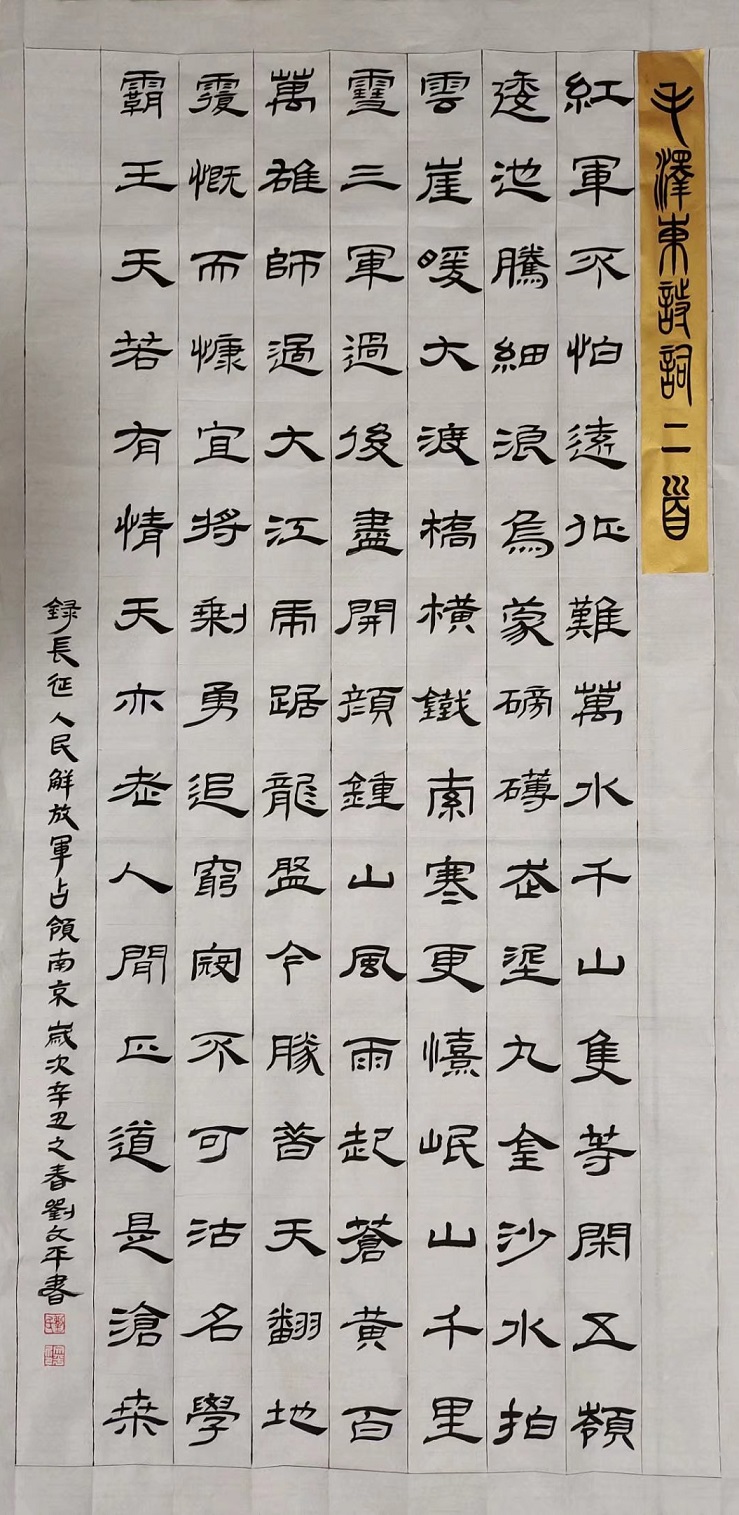 毛澤東詩詞二首
紅軍不怕遠征難萬水千山隻等閑五嶺
逶迤騰細浪烏蒙磅礴走埿丸金沙水拍
雲崖暖大渡橋橫鐵索寒更憘岷山千里
雪三軍過後盡開顏鍾山風雨起蒼黃百
萬雄師過大江虎踞龍盤今勝昔天翻地
覆慨而慷宜將剩勇追窮寇不可沽名學
霸王天若有情天亦老人間正道是滄桑
錄長征人民解放軍占領南京歲次辛丑之春劉文平書